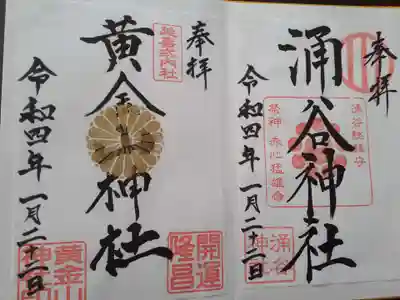 奉拝
涌谷神社
涌谷総鎮守
祭神 赤心猛雄命
令和四年一月二十二日
奉拝
延喜式内社
黄金神社
令和四年一月二十二日
開運
隆昌
黄金山